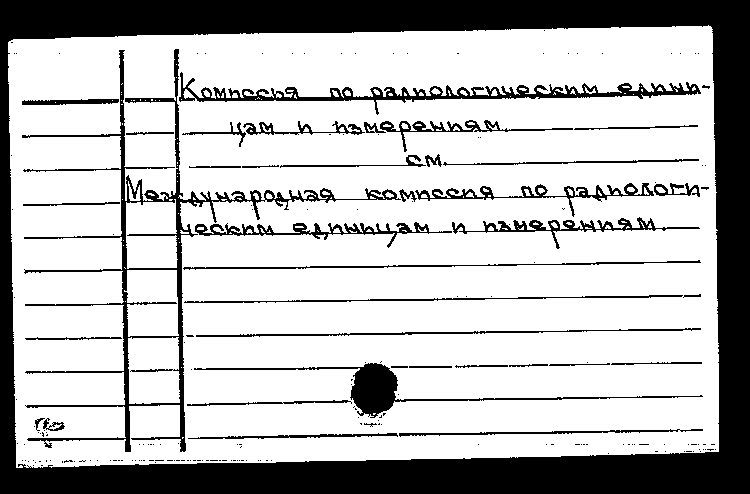 Комиссия по радиологическим едини-
цам и измерениям.
см.
Международная комиссия по радиологи-
ческим единицам и измерениям.